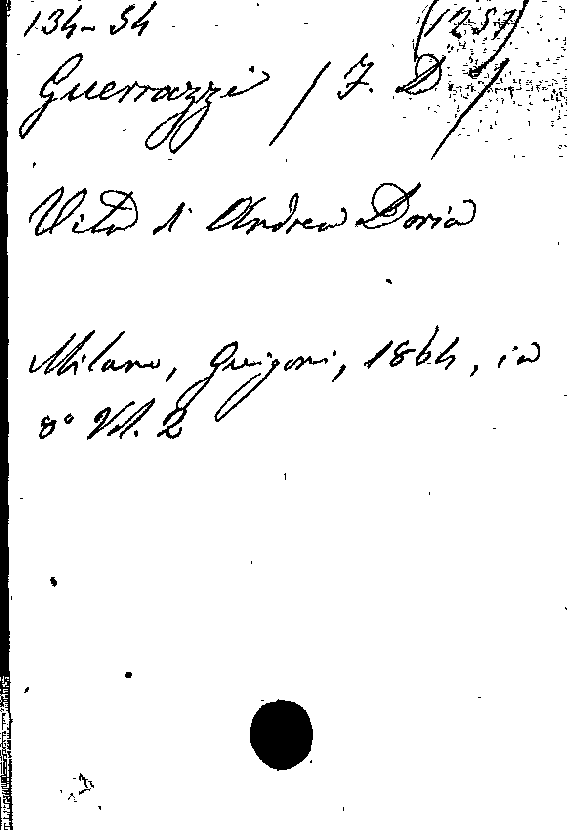 134-54 (1257)
Guerrazzi /F. D./
Vita di Andrea Doria
Milano, Guigoni, 1864, in
8° Vol. 2